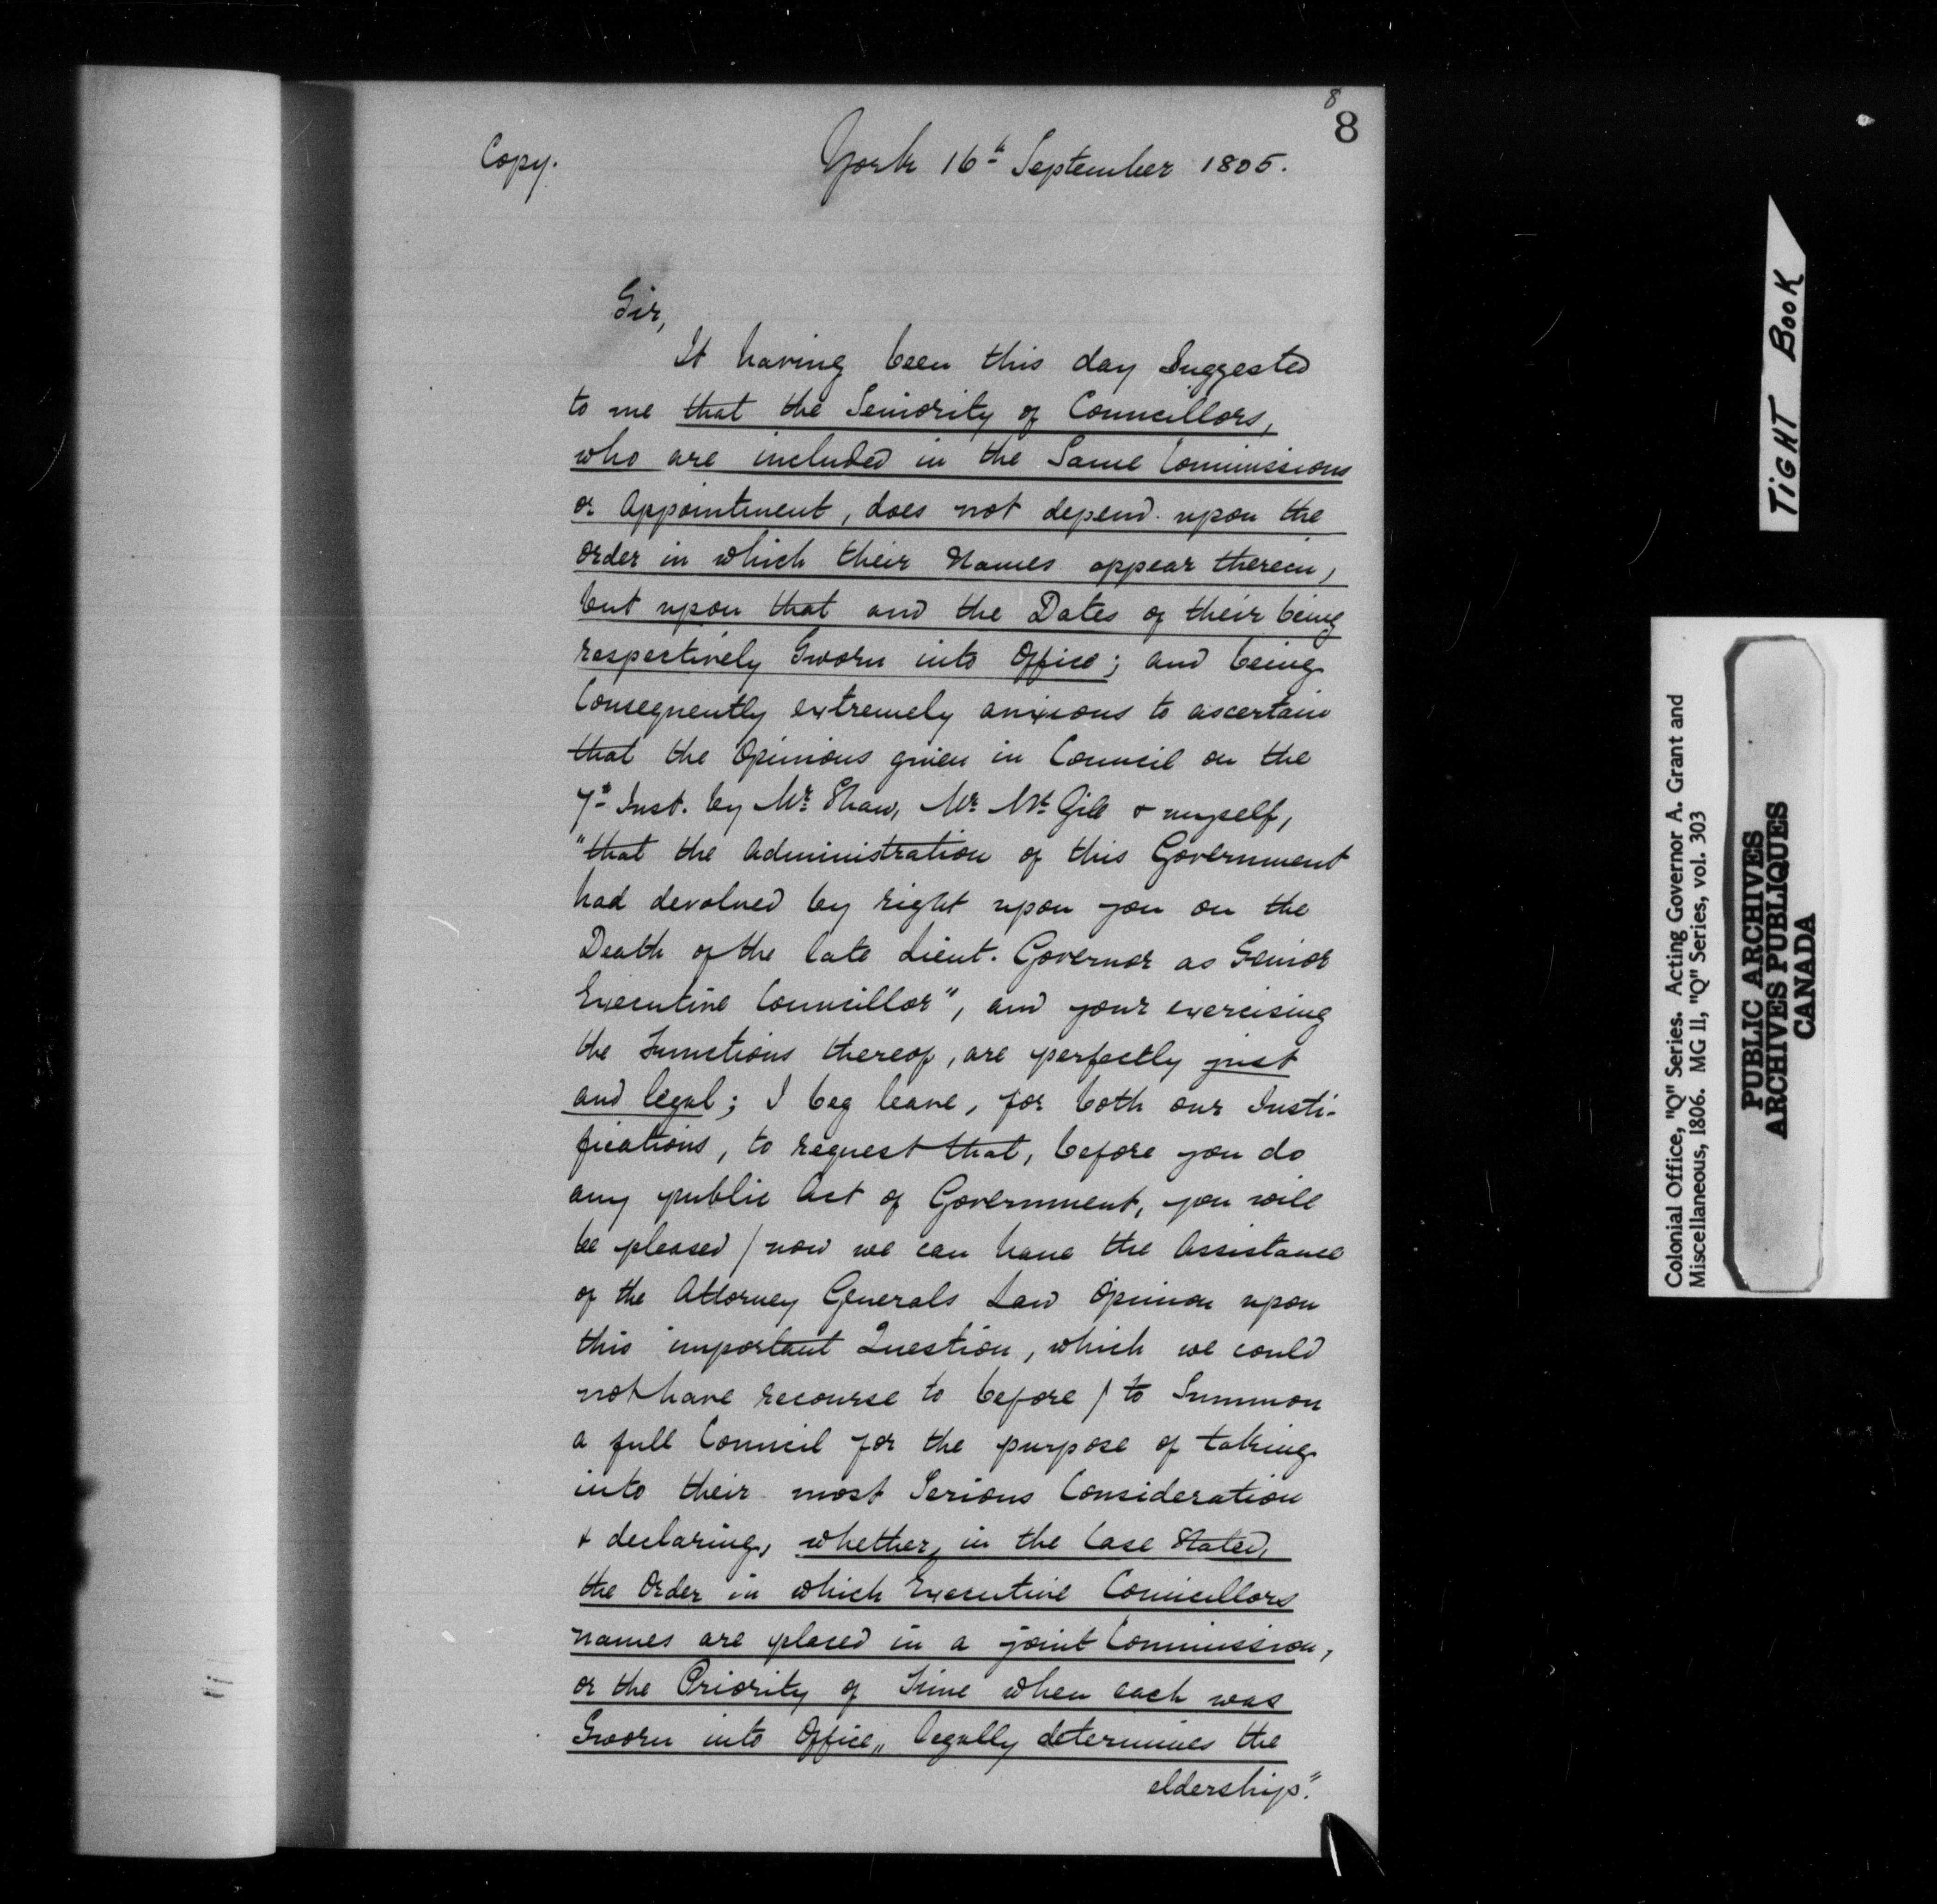 8
8
Copy.
York 16th September 1805.
Sir,
It having been this day Suggested
to me that the Seniority of Councillors,
who are included in the Same Commissions
or Appointment, does not depend upon the
order in which their Names appear therein,
but upon that and the Dates of their being
respectively Sworn into Office; and being
Consequently extremely anxious to ascertain
that the Opinions given in Council on the
7th Inst. by Mr. Shaw, Mr. McGill & myself,
"that the Administration of this Government
had devolved by right upon you on the
Death of the late Lieut. Governor as Senior
Executive Councillor", and your exercising
the Functions thereof, are perfectly just
and legal; I beg leave, for both our Justi-
fications, to request that, before you do
any public Act of Government, you will
be pleased / now we can have the Assistance
of the Attorney Generals Law Opinion upon
this important Question, which we could
not have recourse to before / to Summon
a full Council for the purpose of taking
into their most Serious Consideration
& declaring, whether, in the Case Stated,
the Order in which Executive Councillors
names are placed in a joint Commission,
or the Priority of Time when each was
Sworn into Office,, legally determines the
eldership."
TIGHT BOOK
Colonial Office, "Q" Series. Acting Governor A. Grant and
Miscellaneous, 1806. MG 11, "Q" Series, vol. 303
PUBLIC ARCHIVES
ARCHIVES PUBLIQUES
CANADA